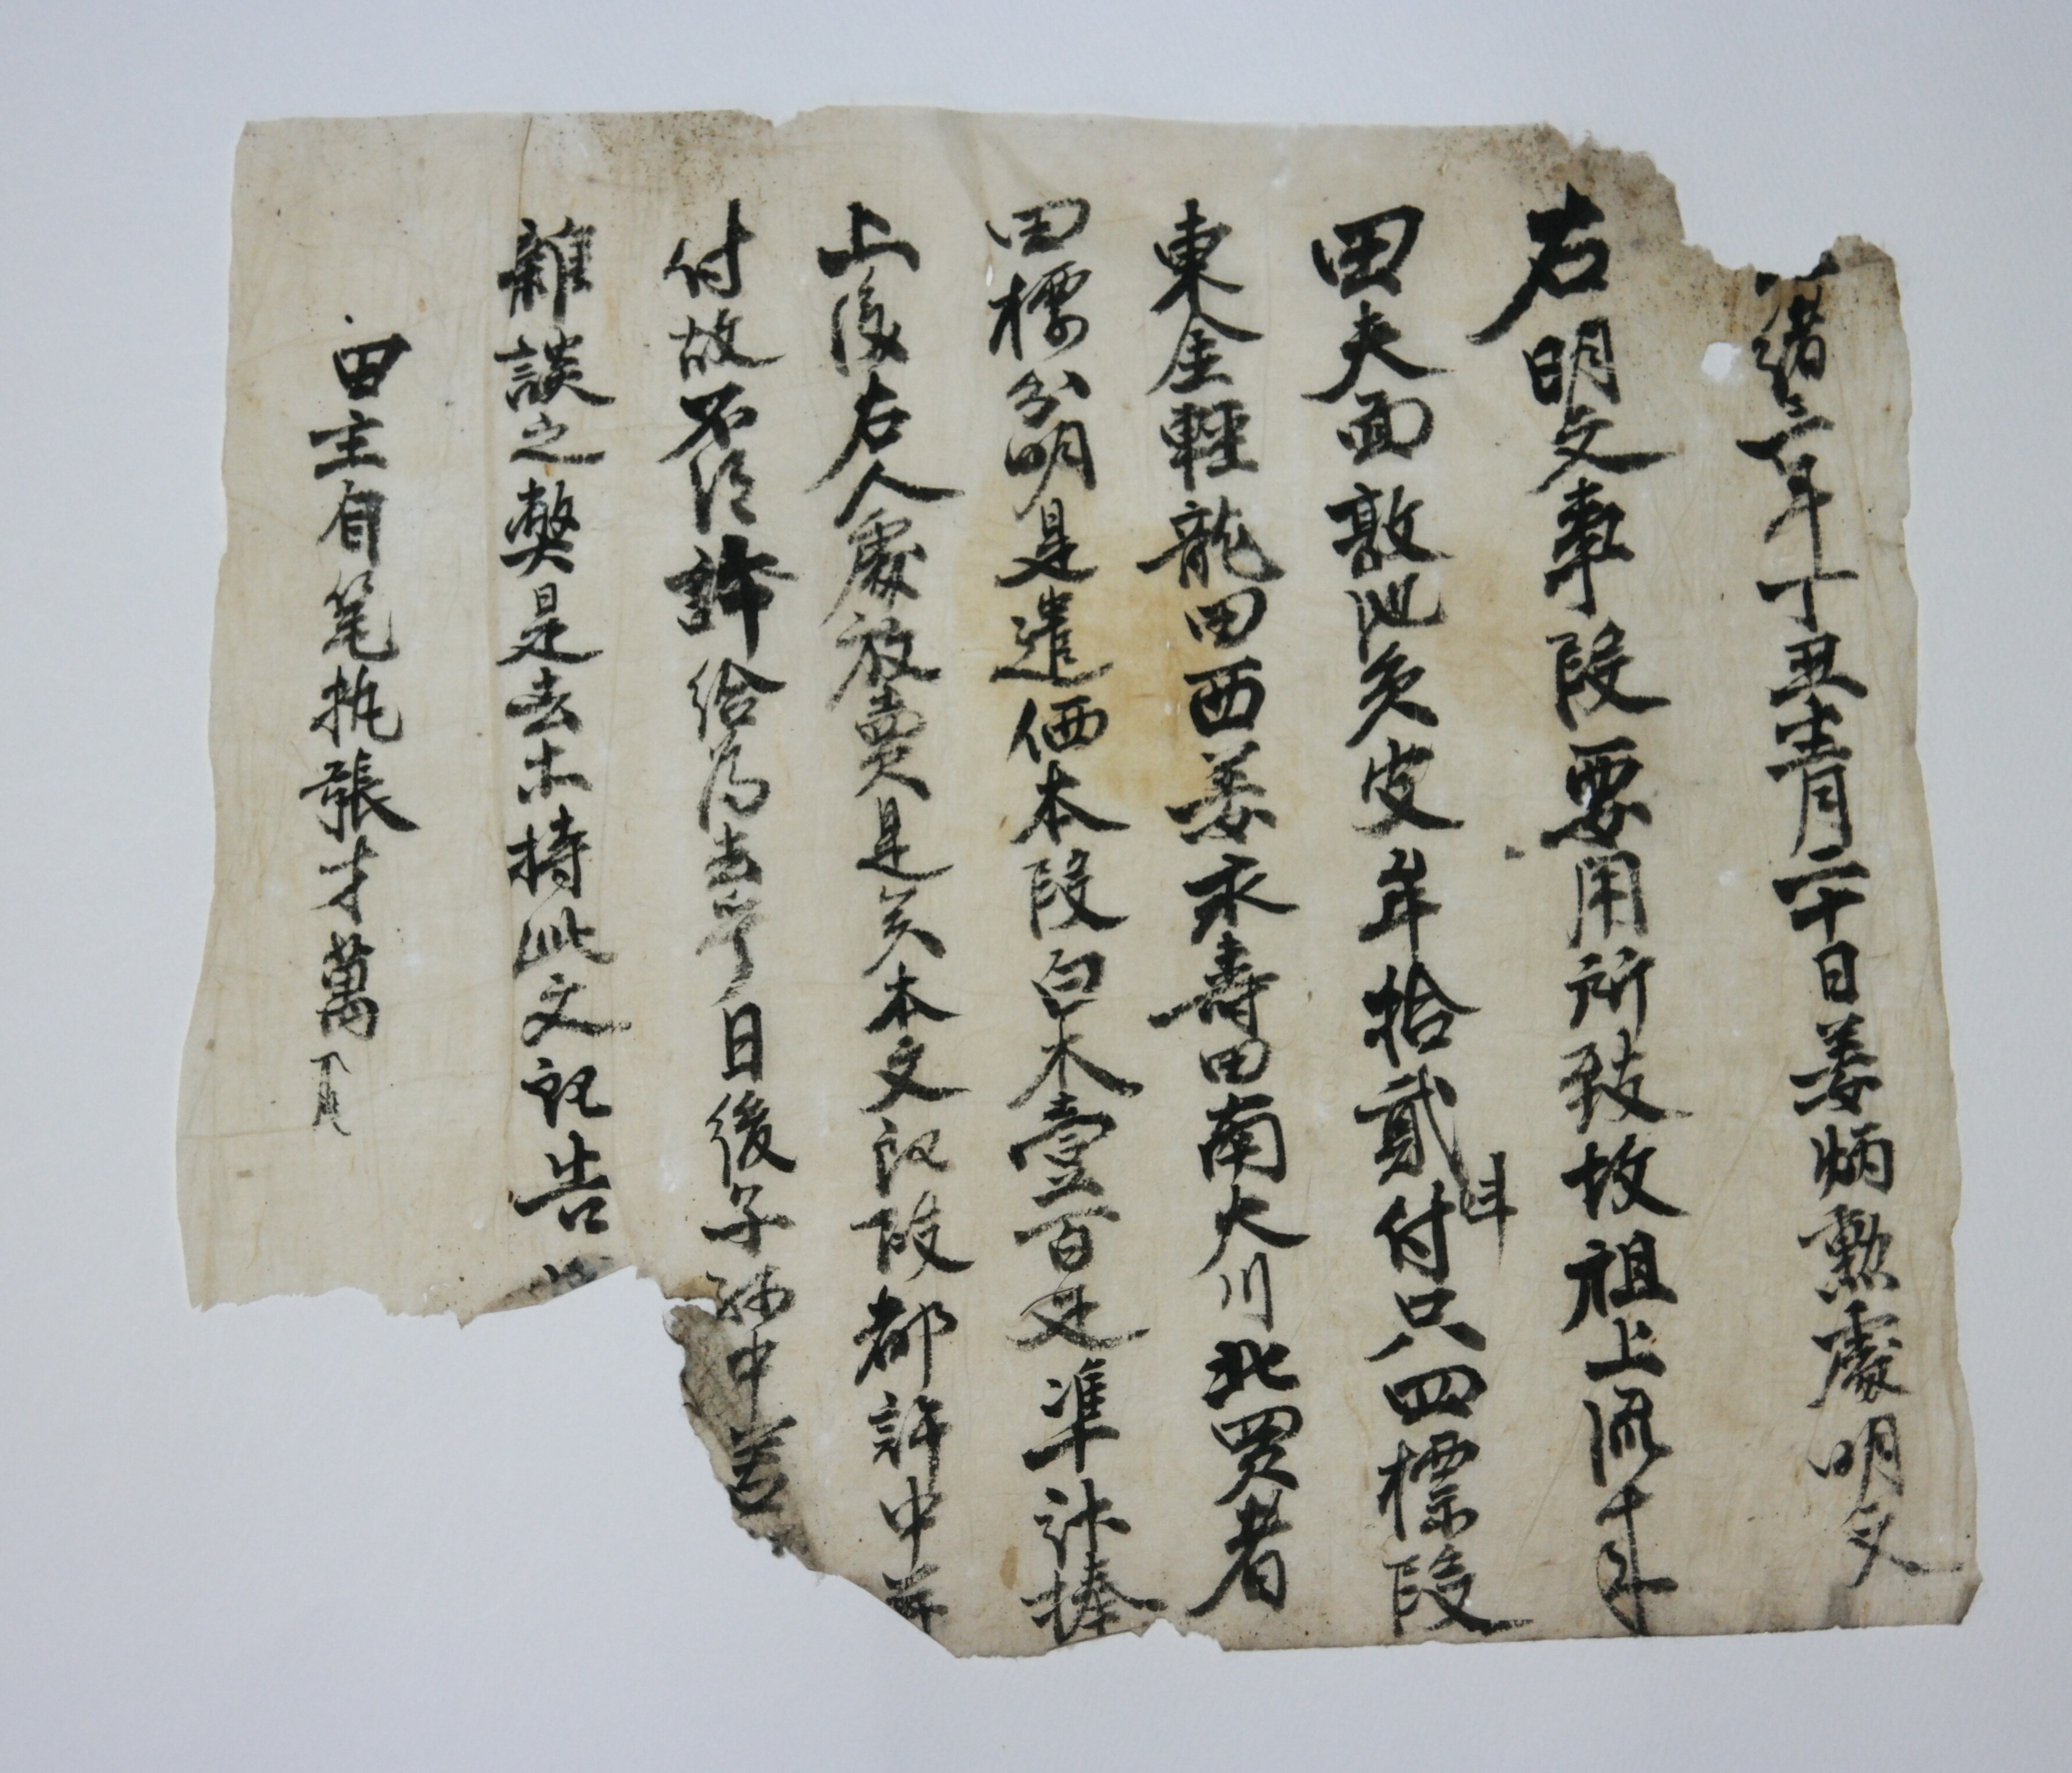 緖二年丁丑十一月二十日姜炳勲處明文
右明文事段要用所致故祖上流來
田夫面敦池員皮牟拾貳斗付只四標段
東金輕龍田西姜永壽田南大川北買者
田標分明是遣価本段白木壹百疋準計捧
上後右人處放賣是矣本文記段都許中並
付故不得許給爲去乎日後子孫中若
雜談之弊是去等持此文記告
田主自筆執張才萬